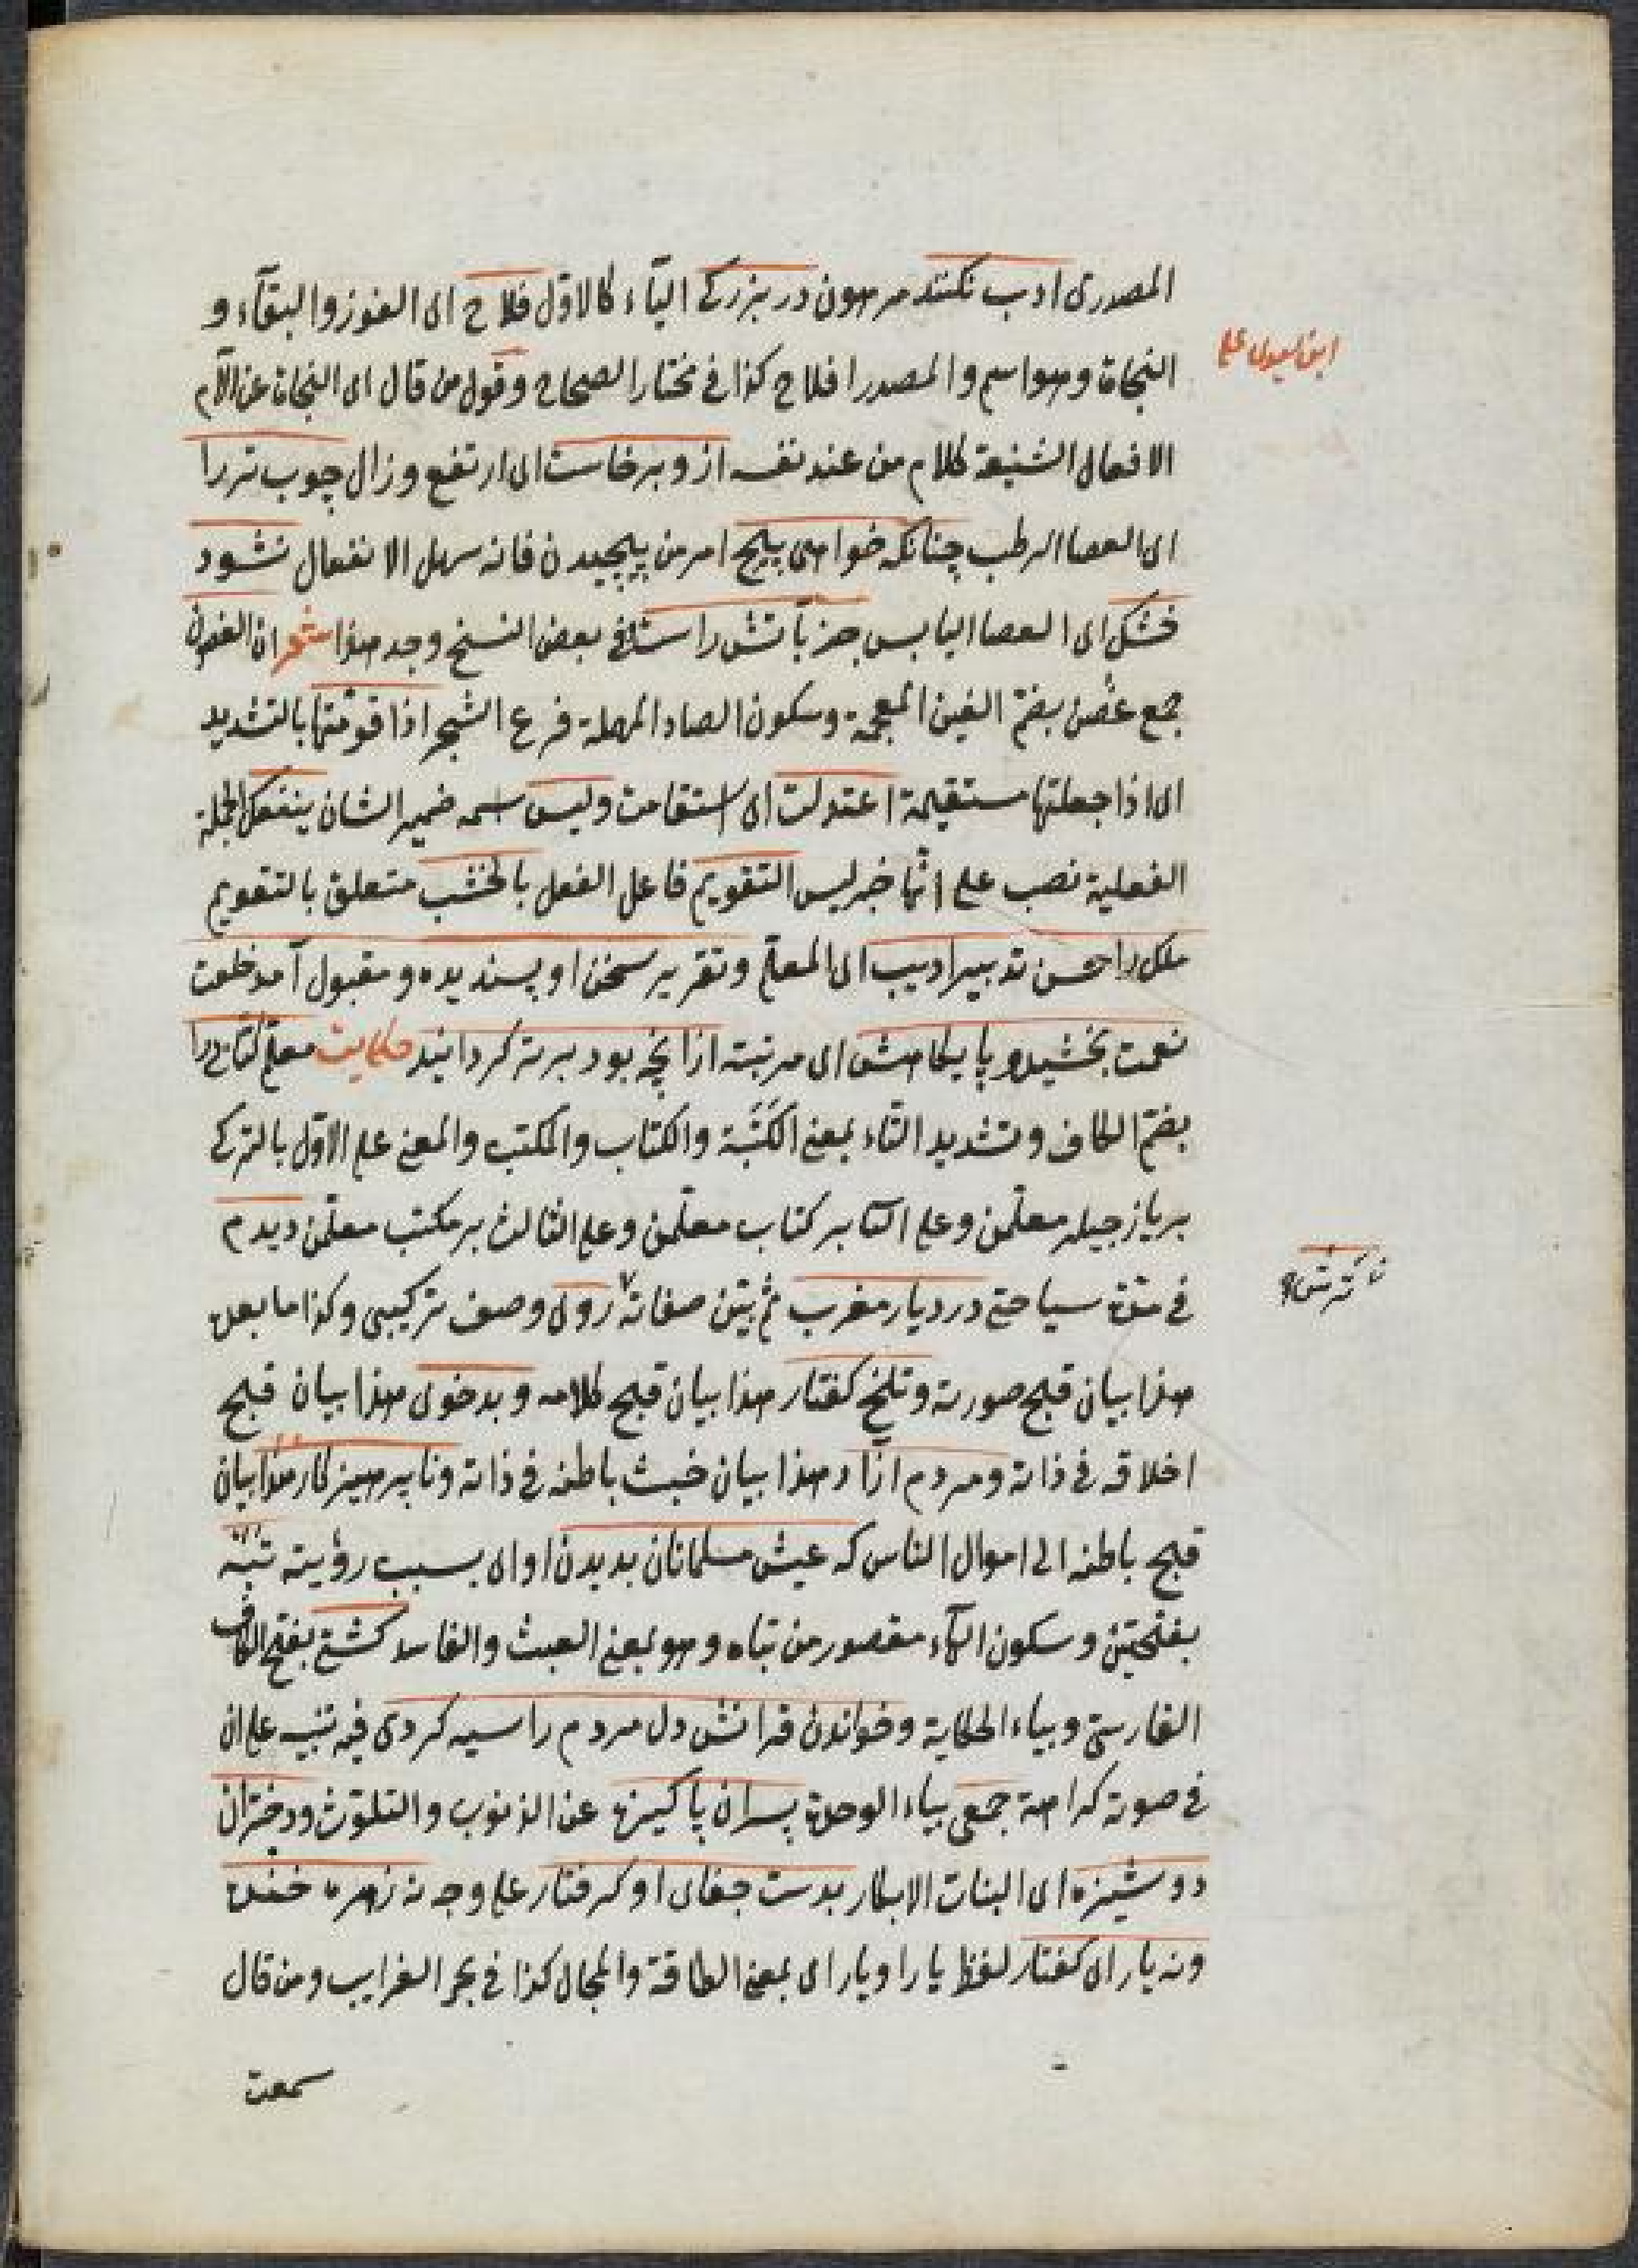 المصدرى ادب نكنند مرهون در بزركى الياء كالاول فلاح اى الفوز والبقآء و
النجاة وهو اسم والمصدر افلاح كذا فى مختار الصحاح وقول من قال اى النجاة عن
الافعال الشنيعة كلام من عند نفسه ازو برخاست اى ارتفع وزال چوب تر را
اى العصا الرطب چنانكه خواهى پيچ امر من پيچيدن فانه سهل الانفعال نشود
خشك اى العصا اليابس جز بآتش راست فى بعض النسخ وجد هذا شعر ان الغصون
جمع غصن بضم الغين المعجمة وسكون الصاد المهملة فرع الشجر اذا قومتها بالتشديد
اى اذا جعلتها مستقيمة اعتدلت اى استقامت وليس اسمه ضمير الشان ينفعك الجملة
الفعلية نصب على انها خبر ليس التقويم فاعل الفعل بالخشب متعلق بالتقويم
ملك را حسن تدبير اديب اى المعلم وتقرير سخن او پسنديده ومقبول آمد خلعت
نعمت بخشيد و پايكاهش اى مرتبته ازانچه بود برتر كردانيد حكايت معلم كتابى را
بضم الكاف وتشديد التاء بمعنى الكتبة والكتاب والمكتب والمعنى على الاول بالتركى
بر يازجيلر معلمن وعلى بر كتاب معلمن وعلى الثالث بر مكتب معلمن ديدم
فى مدة سياحتى در ديار مغرب ثم بين صفاته روى وصف تركيبى وكذا ما بعده
هذا بيان قبح صورته وتلخ كفتار هذا بيان قبح كلامه وبدخوى هذا بيان قبح
اخلاقه فى ذاته ومردم آزار هذا بيان خبث باطنه فى ذاته وناپرهيزكار هذا بيان
قبح باطنه الى اموال الناس كه عيش مسلمانان بديدن او اى بسبب رؤيته تبه
بفتحتين وسكون الهآء مقصور من تباه وهو بمعنى العبث والفاسد كشتى بفتح الكاف
الفارسى وبياء الحكاية وخواندن قرانش دل مردم را سيه كردى فيه تنبيه على ان
فى صوته كراهة جمعى بياء الوحدة پسران پاكيزه عن الذنوب والتلوث ودختران
دوشيزه اى البنات الابكار بدست جفاى او كرفتار على وجه نه زهره خنده
ونه ياراى كفتار لفظ يارا وياراى بمعنى الطاقة والمجال كذا فى بحر الغرايب ومن قال
سمعت